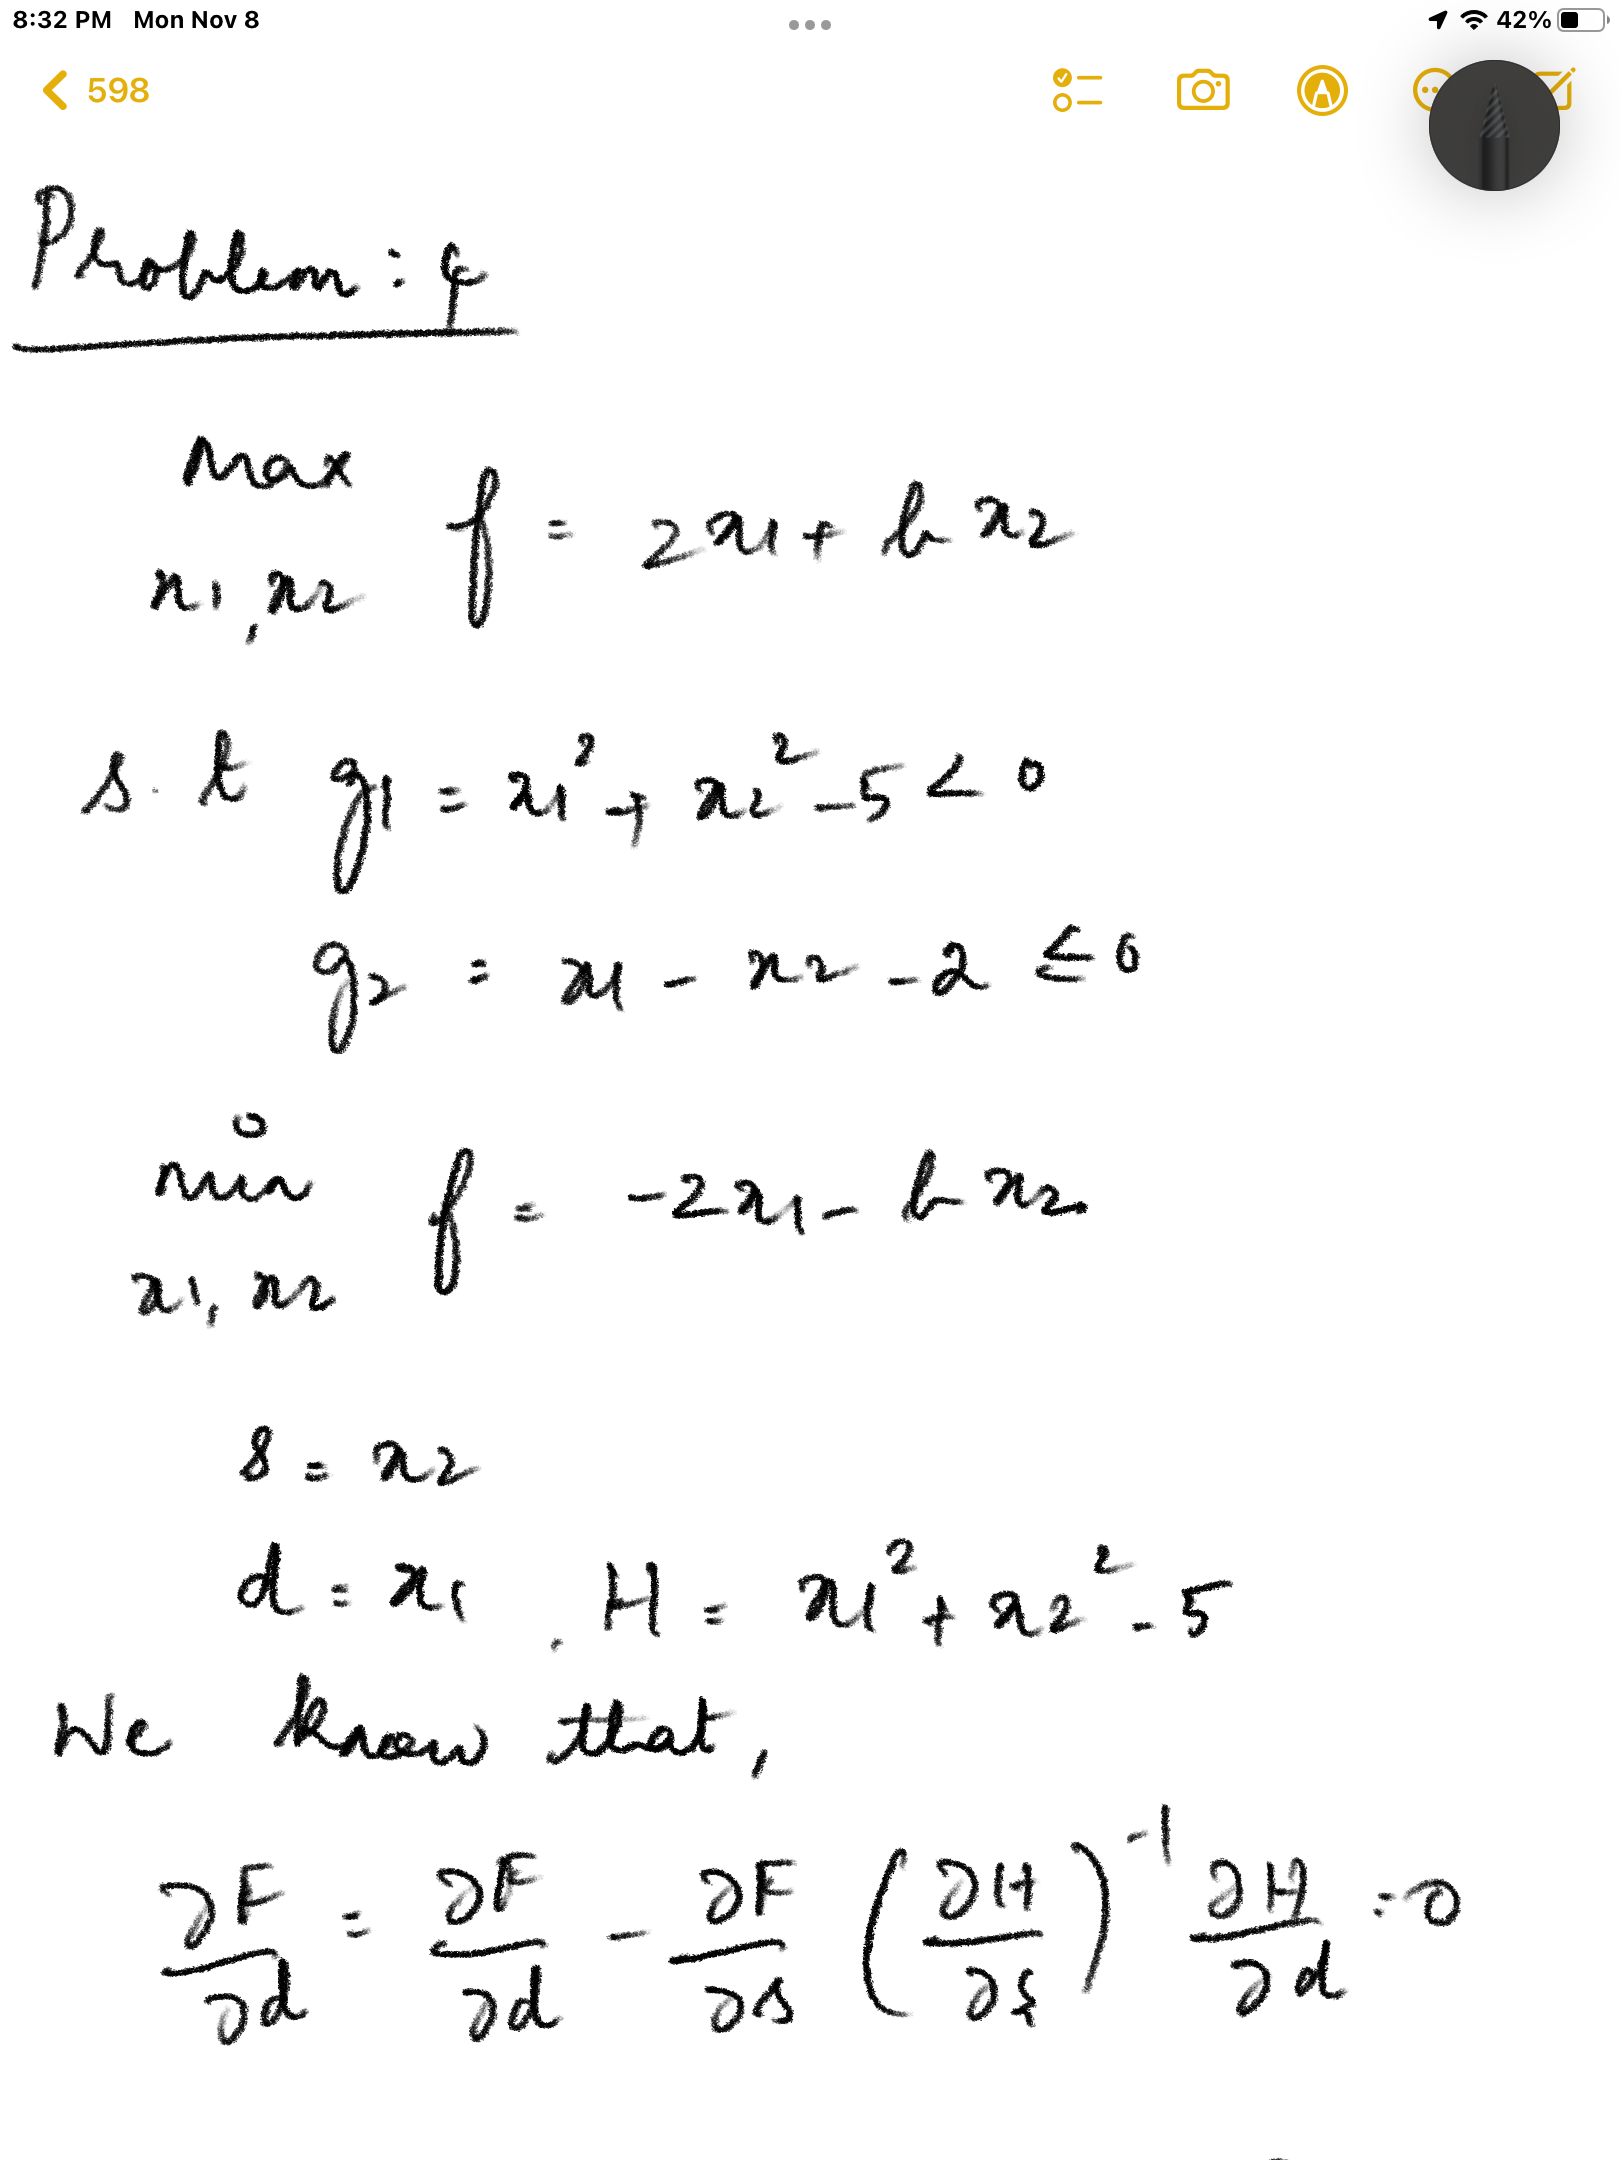 8:32 PM Mon Nov 8 42%
598
Problem: 4
Max f = 2x1 + bx2
x1, x2
s.t g1 = x1² + x2² - 5 < 0
g2 = x1 - x2 - 2 ≤ 0
min f = -2x1 - bx2
x1, x2
s = x2
d = x1, H = x1² + x2² - 5
We know that,
∂F/∂d = ∂F/∂d - ∂F/∂s (∂H/∂s)⁻¹ ∂H/∂d = 0